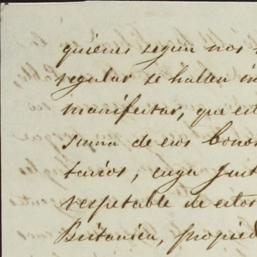 quienes segun nos
regular se hallen in
manifestar, que est
suma de esos bonos
tarios, cuya just
respetable de estos
Britanica, propied